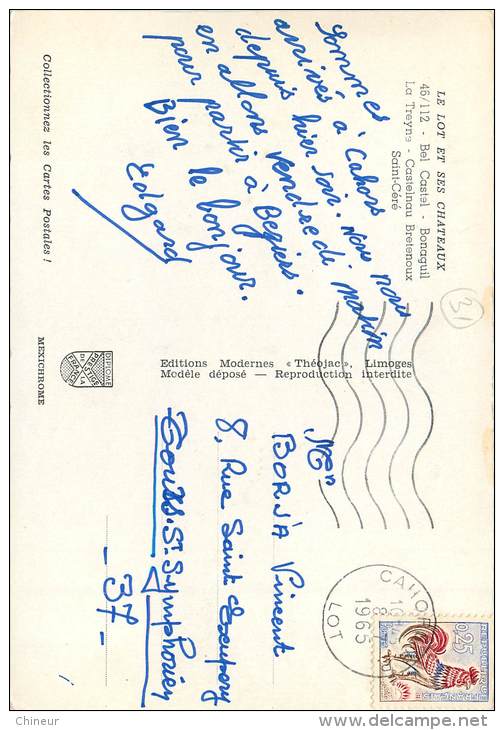 LE LOT ET SES CHATEAUX
46/112 - Bel Castel - Bonaguil
La Treyne - Castelnau Bretenoux
Saint-Céré
Sommes
arrivés à Cahors
depuis hier soir. Nous nous
en allons vendredi matin
pour partir à Beziers.
Bien le bonjour.
Edgard
Collectionnez les Cartes Postales !
31
Editions Modernes « Théojac », Limoges
Modèle déposé — Reproduction interdite
DIPLOME
DE PRESTIGE
DE LA
FRANCE
MEXICHROME
Mr
BORJA Vincent
8, Rue Saint Exupery
Tours. St Symphorien
- 37 -
CAHORS
1965
LOT
0,25
REPUBLIQUE FRANCAISE
Chineur
www.delcampe.net